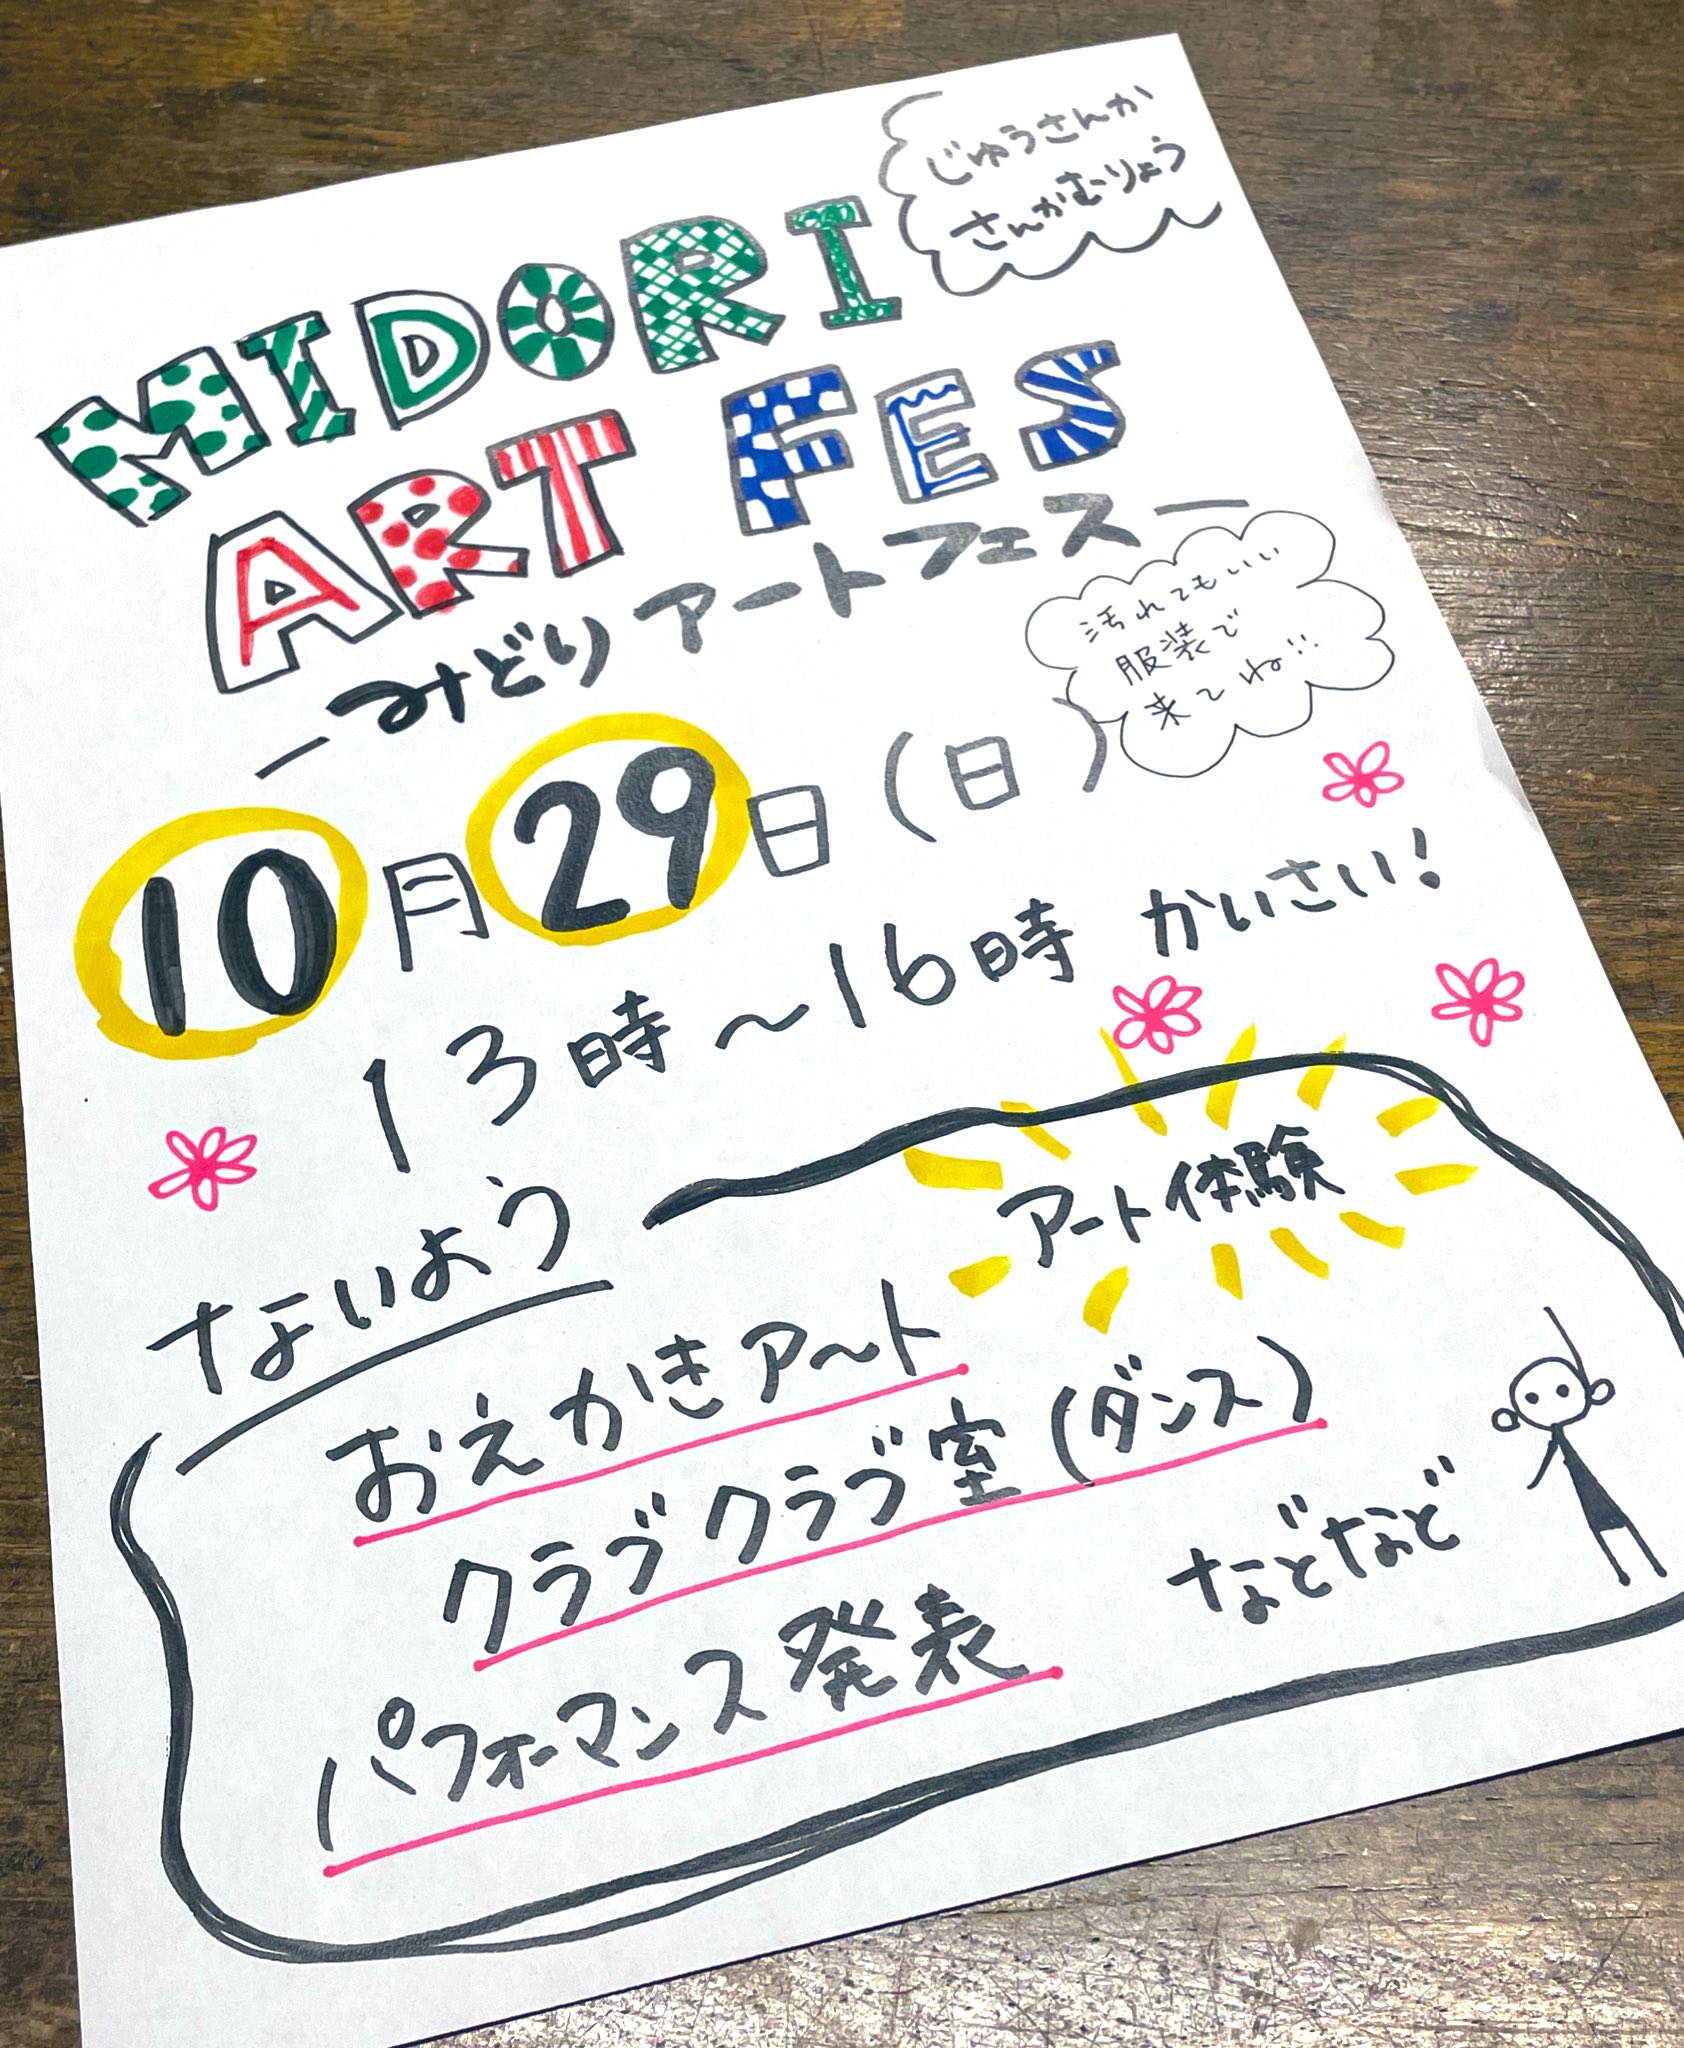 じゆうさんか
さんかむりょう
MIDORI
ART FES
ーみどりアートフェスー
汚れてもいい
服装で
来てね!!
10月29日(日)
13時~16時 かいさい!
ないよう
アート体験
おえかきアート
クラブクラブ室(ダンス)
パフォーマンス発表
などなど